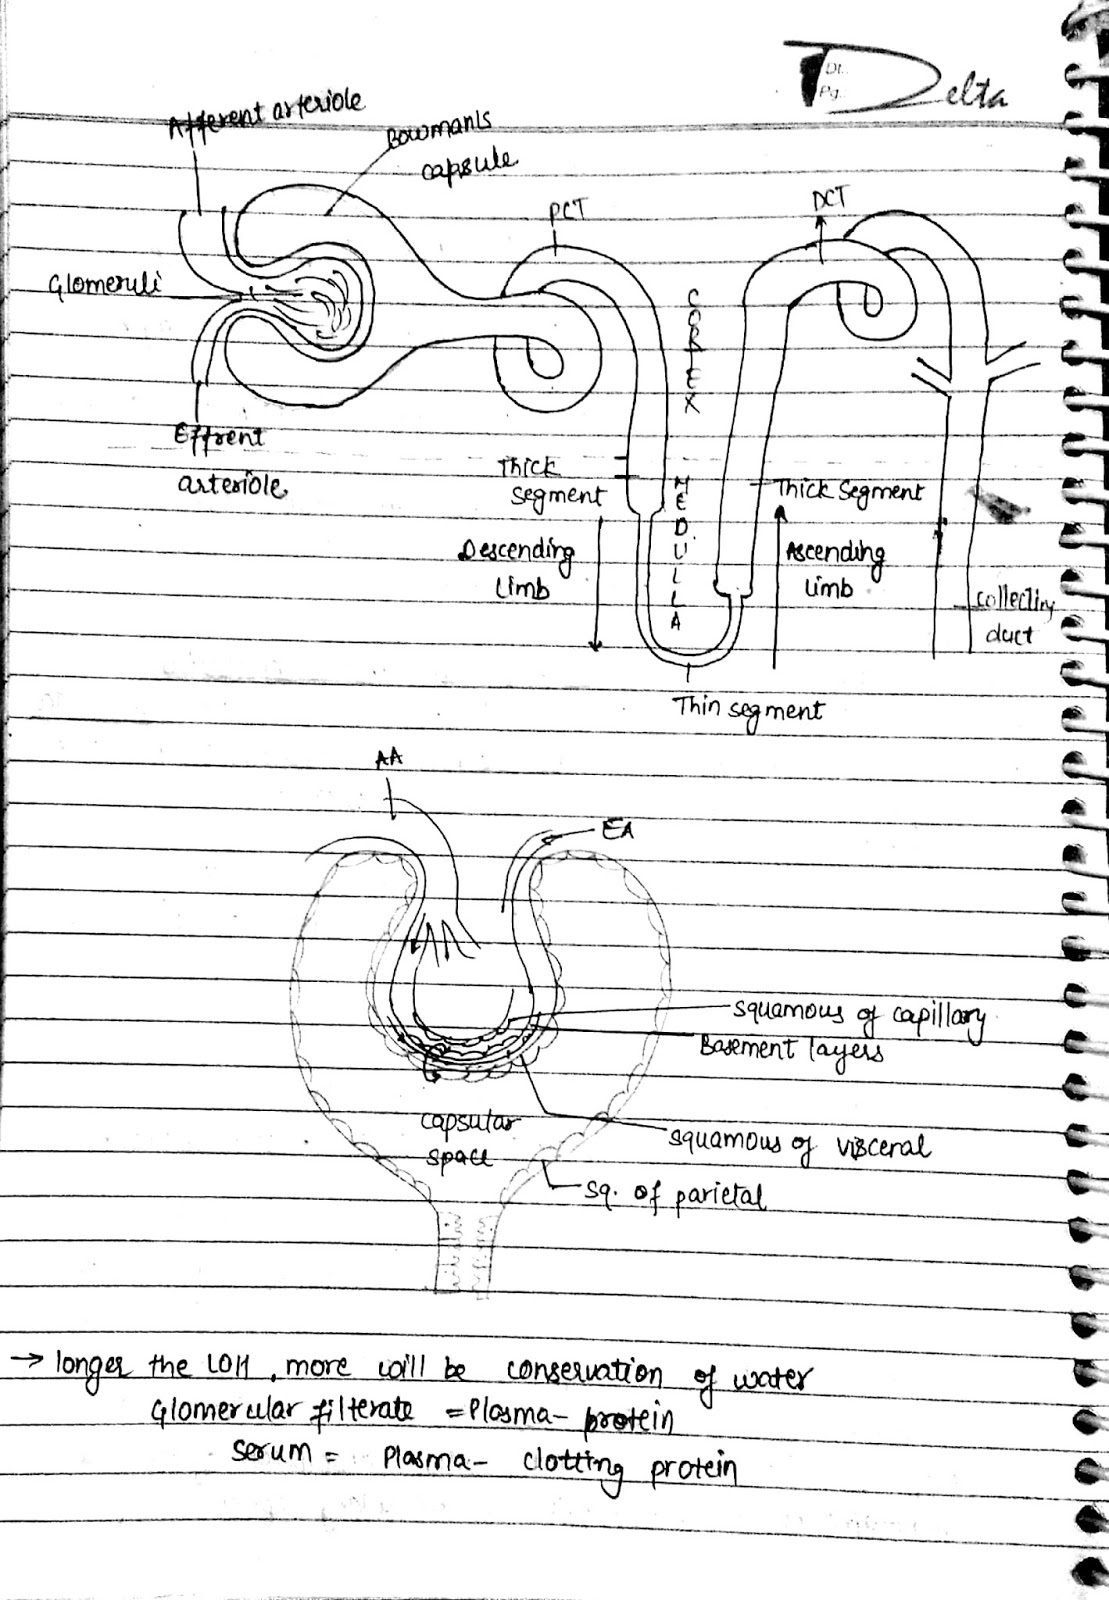 Delta
Dt.
Pg.
Afferent arteriole
Bowman's
capsule
PCT
DCT
Glomeruli
CORTEX
Effrent
arteriole
Thick
segment
MEDULLA
Thick segment
Descending
limb
Ascending
limb
collecting
duct
Thin segment
AA
EA
squamous of capillary
Basement layers
capsular
space
squamous of visceral
sq. of parietal
→ longer the LOH, more will be conservation of water
Glomerular filterate = Plasma - protein
serum = Plasma - clotting protein